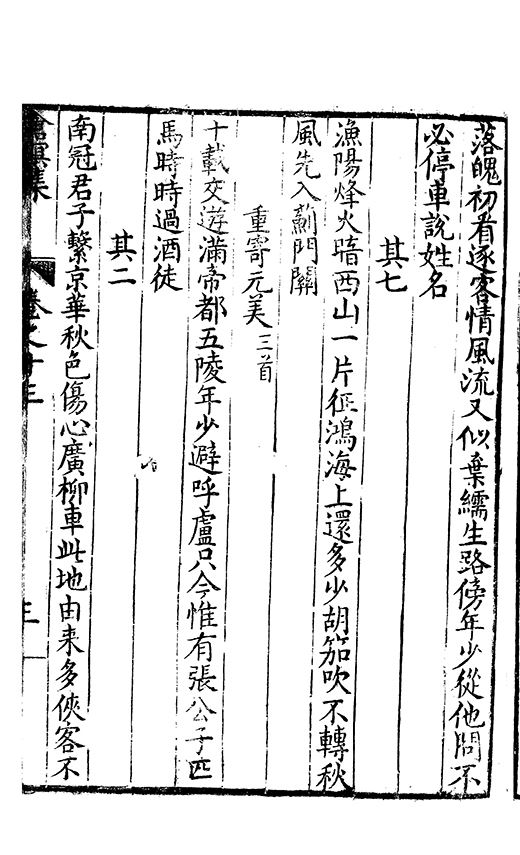 落魄初看逐客情風流又似棄繻生路傍年少從他問不
必停車說姓名
其七
漁陽烽火暗西山一片征鴻海上還多少胡笳吹不轉秋
風先入薊門關
重寄元美三首
十載交遊滿帝都五陵年少避呼盧只今惟有張公子匹
馬時時過酒徒
其二
南冠君子繫京華秋色傷心廣柳車此地由来多俠客不
滄溟集 卷之十三 三